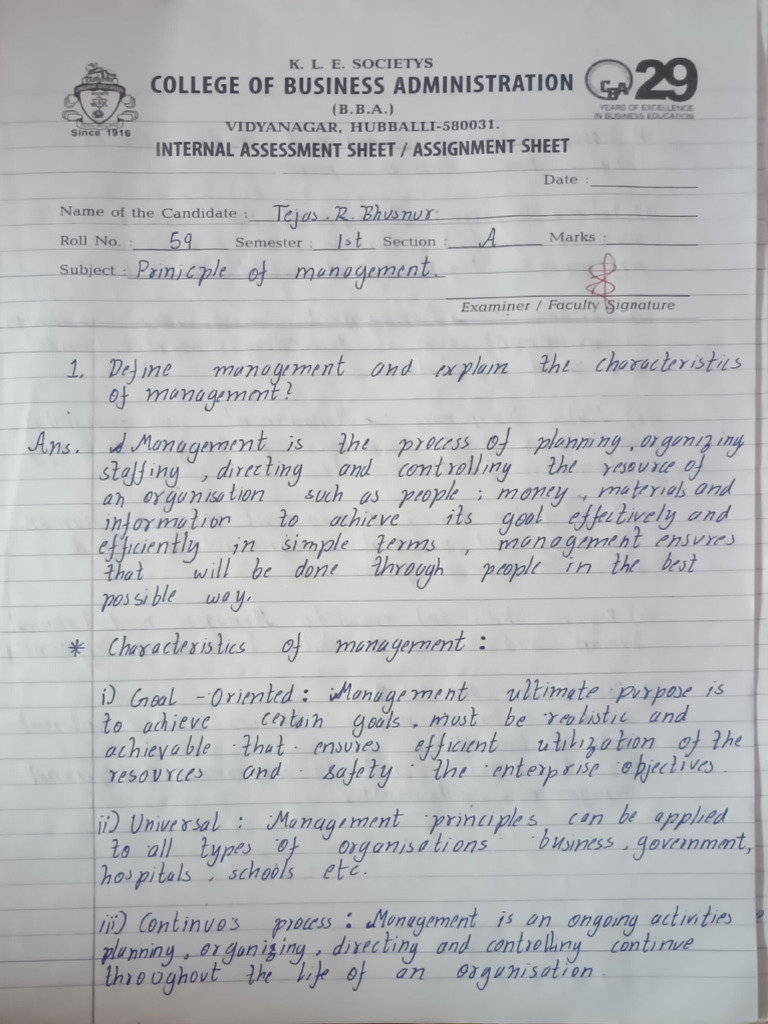 K. L. E. SOCIETYS
COLLEGE OF BUSINESS ADMINISTRATION
(B.B.A.)
VIDYANAGAR, HUBBALLI-580031.
INTERNAL ASSESSMENT SHEET / ASSIGNMENT SHEET
Since 1916
CBA 29
YEARS OF EXCELLENCE
IN BUSINESS EDUCATION
Date :
Name of the Candidate : Tejas. R. Bhusnur.
Roll No. : 59 Semester : 1st Section : A Marks :
Subject : Prinicple of management.
Examiner / Faculty Signature
1. Define management and explain the characteristics
of management?
Ans. Management is the process of planning, organizing
staffing, directing and controlling the resource of
an organisation such as people ; money, materials and
information to achieve its goal effectively and
efficiently in simple terms, management ensures
that will be done through people in the best
possible way.
* Characteristics of management :
i) Goal - Oriented : Management ultimate purpose is
to achieve certain goals. must be realistic and
achievable that ensures efficient utilization of the
resources and safety the enterprise objectives.
ii) Universal : Management principles can be applied
to all types of organisations business, government,
hospitals, schools etc.
iii) Continuo's process : Management is an ongoing activities
planning, organizing, directing and controlling continue
throughout the life of an organisation.